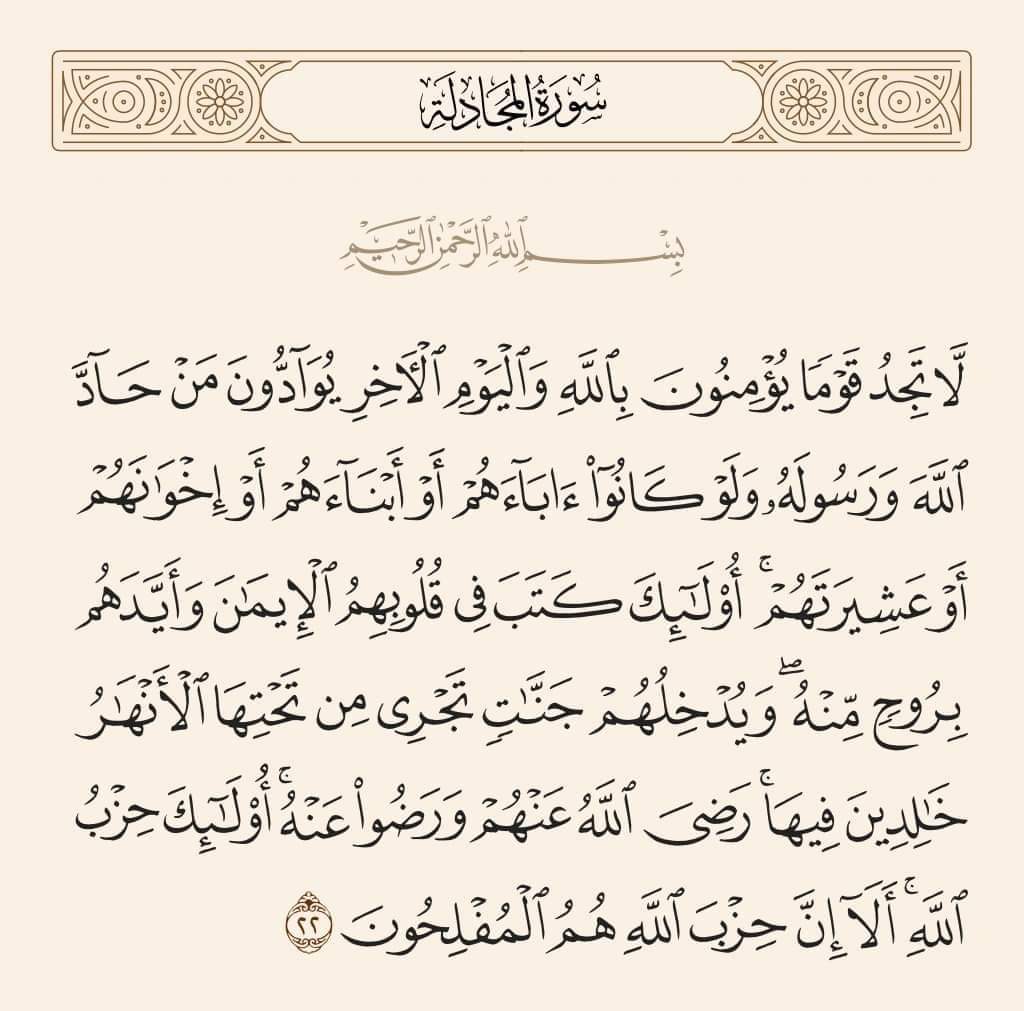 سُورَةُ المُجَادلَةِ
بِسْمِ ٱللَّهِ ٱلرَّحْمَٰنِ ٱلرَّحِيمِ
لَّا تَجِدُ قَوْمًا يُؤْمِنُونَ بِٱللَّهِ وَٱلْيَوْمِ ٱلْأَخِرِ يُوَآدُّونَ مَنْ حَآدَّ
ٱللَّهَ وَرَسُولَهُۥ وَلَوْ كَانُوٓا۟ ءَابَآءَهُمْ أَوْ أَبْنَآءَهُمْ أَوْ إِخْوَٰنَهُمْ
أَوْ عَشِيرَتَهُمْ ۚ أُو۟لَٰٓئِكَ كَتَبَ فِى قُلُوبِهِمُ ٱلْإِيمَٰنَ وَأَيَّدَهُم
بِرُوحٍ مِّنْهُ ۖ وَيُدْخِلُهُمْ جَنَّٰتٍ تَجْرِى مِن تَحْتِهَا ٱلْأَنْهَٰرُ
خَٰلِدِينَ فِيهَا ۚ رَضِىَ ٱللَّهُ عَنْهُمْ وَرَضُوا۟ عَنْهُ ۚ أُو۟لَٰٓئِكَ حِزْبُ
ٱللَّهِ ۚ أَلَآ إِنَّ حِزْبَ ٱللَّهِ هُمُ ٱلْمُفْلِحُونَ ٢٢